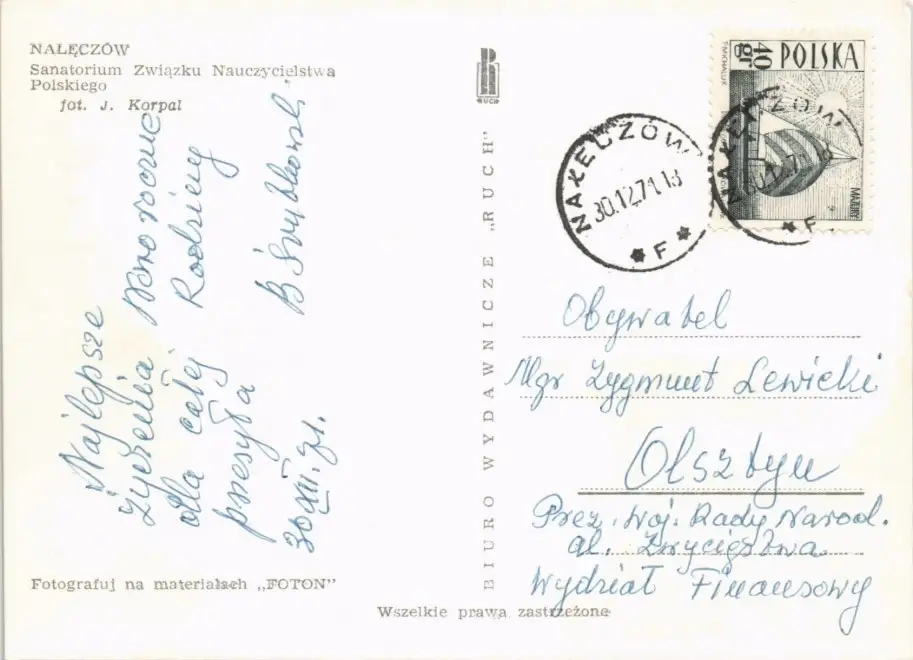 NAŁĘCZÓW
Sanatorium Związku Nauczycielstwa
Polskiego
fot. J. Korpal
Najlepsze
Życzenia Noworoczne
dla całej Rodziny
przesyła B
30 XII. 71.
Fotografuj na materiałach „FOTON"
RUCH
BIURO WYDAWNICZE „RUCH"
Wszelkie prawa zastrzeżone
NAŁĘCZÓW
30.12.71.18
F
40 gr
POLSKA
MAZURY
NAŁĘCZÓW
F
Obywatel
Mgr Zygmunt Lewicki
Olsztyn
Prez. Woj. Rady Narod.
al. Zwycięstwa
Wydział Finansowy